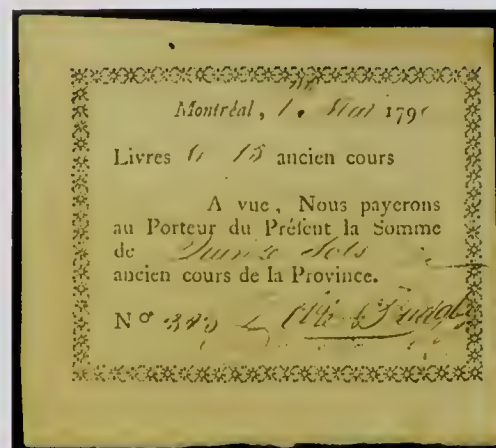 Montréal, 1. Mai 179
Livres 15 ancien cours
A vue, Nous payerons
au Porteur du Préſent la Somme
de Quinze Sols
ancien cours de la Province.
Nº